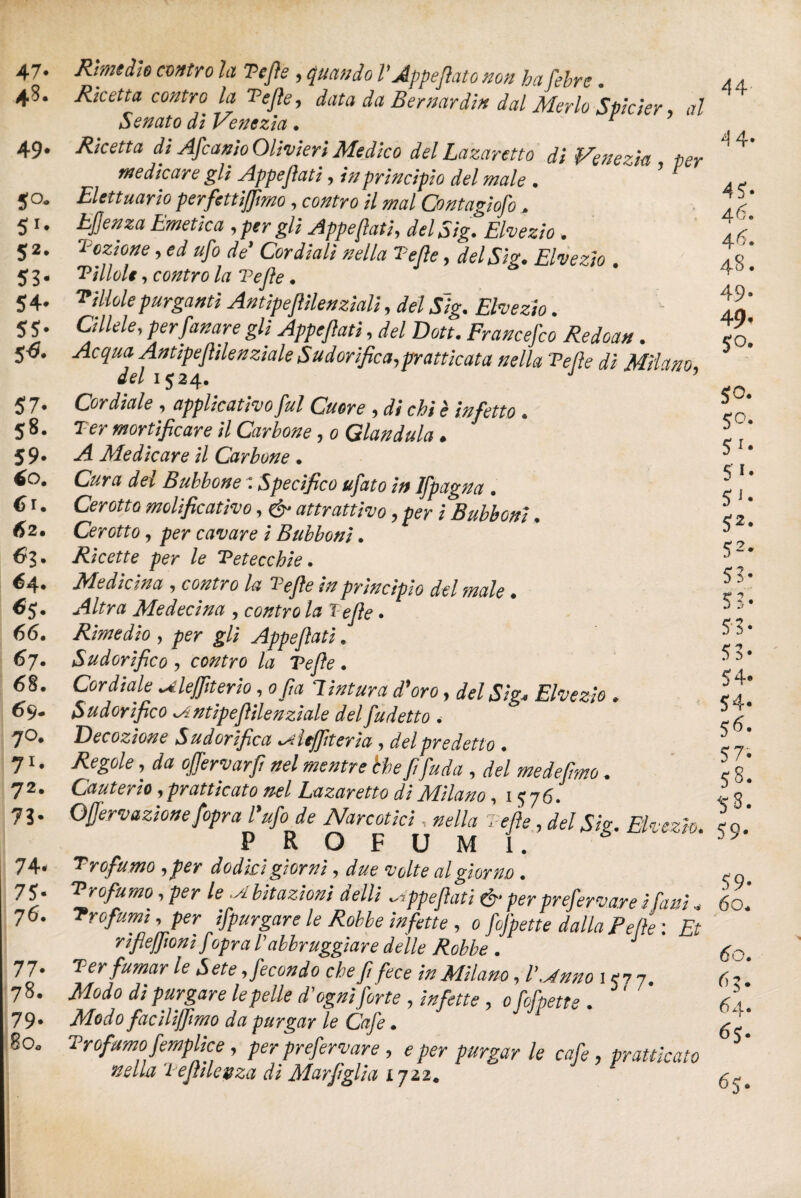 47. Rimedio contro la Peste, quando l'Appestato non ha febre. 44
48. Ricetta contro la Peste, data da Bernardin dal Merlo Spicier, al
Senato di Venezia. 44.
49. Ricetta di Ascanio Olivieri Medico del Lazaretto di Venezia, per
medicare gli Appestati, in principio del male. 45.
50. Elettuario perfettissimo, contro il mal Contagioso. 46.
51. Essenza Emetica, per gli Appestati, del Sig. Elvezio. 46.
52. Pozione, ed uso de' Cordiali nella Peste, del Sig. Elvezio. 48.
53. Pillole, contro la Peste. 49.
54. Pillole purganti Antipestilenziali, del Sig. Elvezio. 49.
55. Cillele, per sanare gli Appestati, del Dott. Francesco Redoan. 50.
56. Acqua Antipestilenziale Sudorifica, pratticata nella Peste di Milano,
del 1524. 50.
57. Cordiale, applicativo sul Cuore, di chi è infetto. 50.
58. Per mortificare il Carbone, o Glandula. 51.
59. A Medicare il Carbone. 51.
60. Cura del Bubbone: Specifico usato in Ispagna. 51.
61. Cerotto molificativo, & attrattivo, per i Bubboni. 52.
62. Cerotto, per cavare i Bubboni. 52.
63. Ricette per le Petecchie. 53.
64. Medicina, contro la Peste in principio del male. 53.
65. Altra Medecina, contro la Peste. 53.
66. Rimedio, per gli Appestati. 53.
67. Sudorifico, contro la Peste. 54.
68. Cordiale Alessiterio, o sia Tintura d'oro, del Sig. Elvezio. 54.
69. Sudorifico Antipestilenziale del sudetto. 56.
70. Decozione Sudorifica Alessiteria, del predetto. 57.
71. Regole, da osservarsi nel mentre che si suda, del medesimo. 58.
72. Cauterio, pratticato nel Lazaretto di Milano, 1576. 58.
73. Osservazione sopra l'uso de Narcotici, nella Peste, del Sig. Elvezio. 59.
PROFUMI.
74. Profumo, per dodici giorni, due volte al giorno. 59.
75. Profumo, per le Abitazioni delli Appestati & per preservare i sani. 60.
76. Profumi, per ispurgare le Robbe infette, o sospette dalla Peste: Et
riflessioni sopra l'abbruggiare delle Robbe. 60.
77. Per fumar le Sete, secondo che si fece in Milano, l'Anno 1577. 63.
78. Modo di purgare le pelle d'ogni sorte, infette, o sospette. 64.
79. Modo facilissimo da purgar le Case. 65.
80. Profumo semplice, per preservare, e per purgar le case, pratticato
nella Pestilenza di Marsiglia 1722. 65.